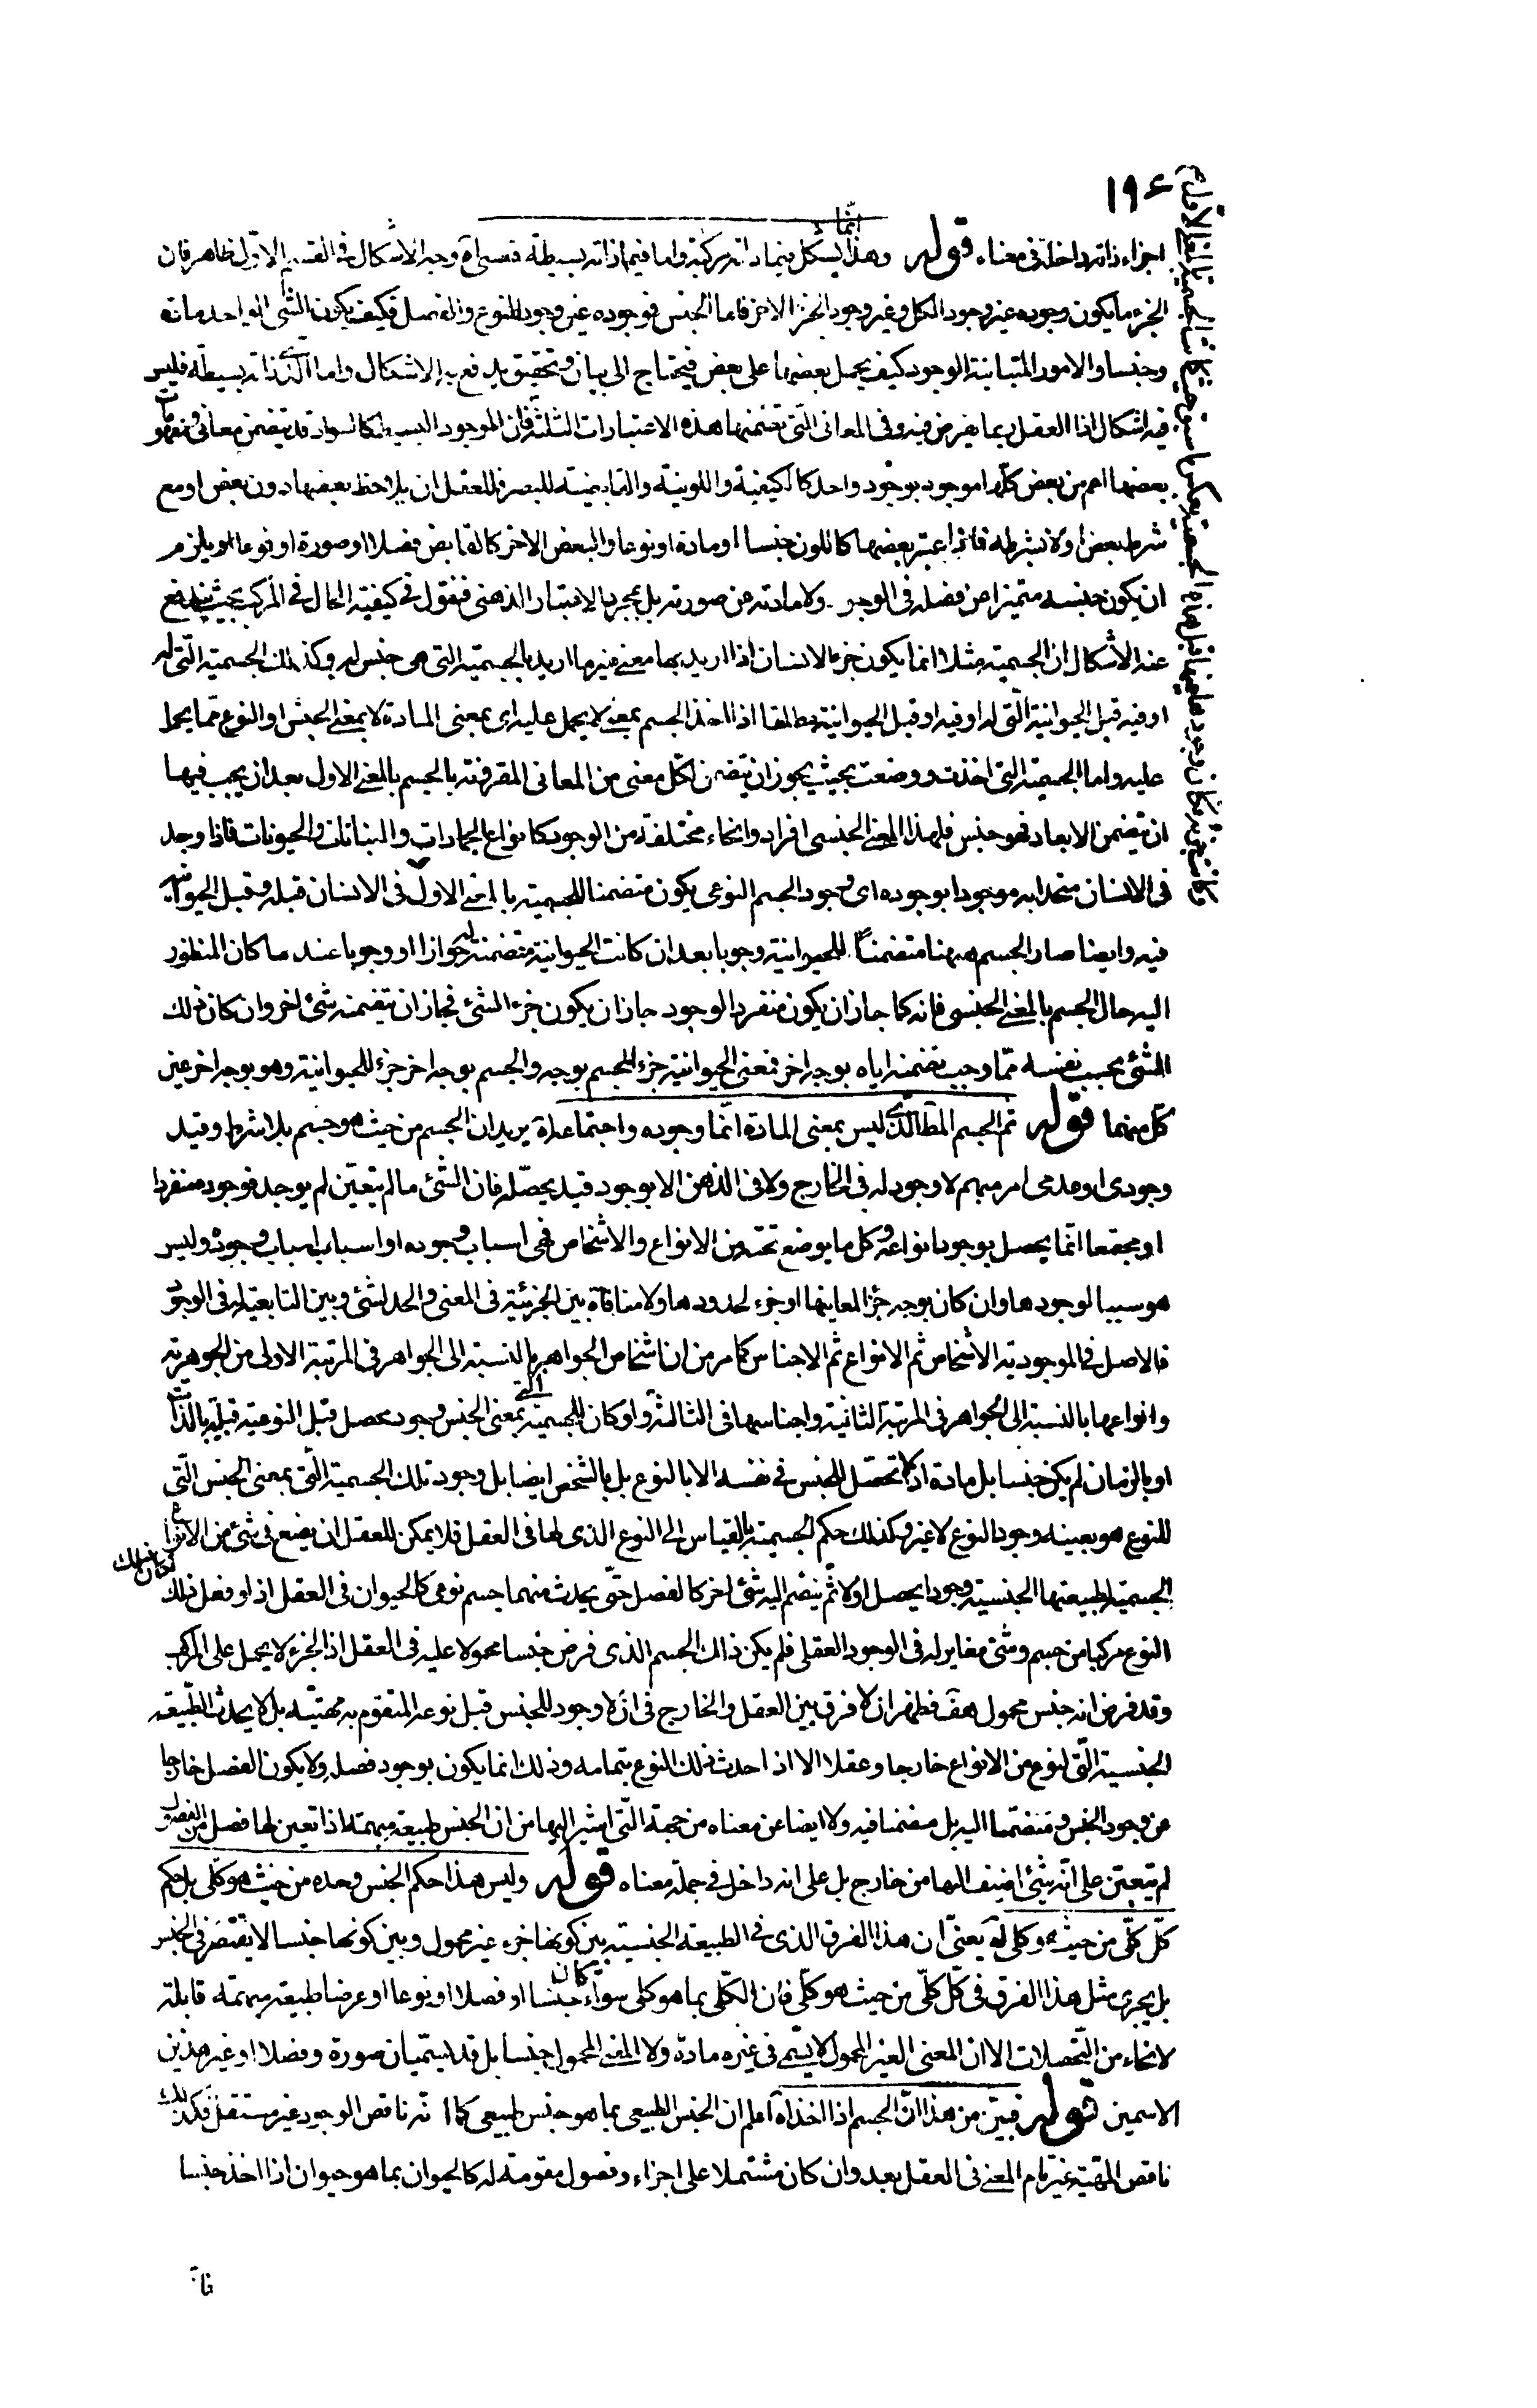 ١٩٤
اجزاء ذاته داخلة فى معناه قوله وهذا انما يشكل فيما ذاته مركبة واما فيما ذاته بسيطة فعسى آه وجه الاشكال فى القسم الاول ظاهر فان
الجزء ما يكون وجوده غير وجود الكل وغير وجود الجزء الاخر فاما الجنس فوجوده عين وجود النوع والفصل فكيف يكون الشئ الواحد مادة
وجنسا والامور المتباينة الوجود كيف يحمل بعضها على بعض فيحتاج الى بيان وتحقيق يدفع به الاشكال واما الذى ذاته بسيطة فليس
فيه اشكال اذا العقل ربما يفرض فيه وفى المعانى التى تضمنها هذه الاعتبارات الثلثة فان الموجود البسيط كالسواد قد يتضمن معانى ومفهومات
بعضها اعم من بعض كلها موجود بوجود واحد كالكيفية واللونية والقابضية للبصر فللعقل ان يلاحظ بعضها دون بعض او مع
شرط بعض او لا بشرطه فاذا اعتبر بعضها كاللون جنسا او مادة او نوعا والبعض الاخر كالقابض فصلا او صورة او نوعا لم يلزم
ان يكون جنسه متميزا عن فصله فى الوجود ولا مادته عن صورته بل بمجرد الاعتبار الذهنى فنقول فى كيفية الحال فى المركب بحيث يندفع
عنه الاشكال ان الجسمية مثلا انما يكون جزء الانسان اذا اريد بها معنى غير ما اريد بالجسمية التى هى جنس له وكذلك الجسمية التى له
او فيه قبل الحيوانية التى له او فيه او قبل الحيوانية مطلقا اذا اخذ الجسم بمعنى لا يحمل عليه اى بمعنى المادة لا بمعنى الجنس او النوع مما يحمل
عليه واما الجسمية التى اخذت ووضعت بحيث يجوز ان يتضمن لكل معنى من المعانى المقرونة بالجسم بالمعنى الاول بعد ان يجب فيها
ان يتضمن الابعاد فهو جنس فلهذا المعنى الجنسى افراد وانحاء مختلفة من الوجود كانواع الجمادات والنباتات والحيونات فاذا وجد
فى الانسان متحدا به موجودا بوجوده اى وجود الجسم النوعى يكون متضمنا للجسمية بالمعنى الاول فى الانسان قبله وقبل الحيوانية
فيه وايضا صار الجسم ههنا متضمنا للحيوانية وجوبا بعد ان كانت الحيوانية متضمنة له جوازا او وجوبا عند ما كان المنظور
اليه حال الجسم بالمعنى الجنسى فانه كما جاز ان يكون منفرد الوجود جاز ان يكون جزء الشئ فجاز ان يتضمنه شئ اخر وان كان ذلك
الشئ بحسب نفسه مما وجب تضمنه اياه بوجه اخر فمعنى الحيوانية جزء للجسم بوجه والجسم بوجه اخر جزء للحيوانية وهو بوجه اخر عين
كل منهما قوله ثم الجسم المطلق الذى ليس بمعنى المادة انما وجوده واجتماعه آه يريد ان الجسم من حيث هو جسم بلا شرط وقيد
وجودى او عدمى امر مبهم لا وجود له فى الخارج ولا فى الذهن الا بوجود قيد يحصله فان الشئ ما لم يتعين لم يوجد فوجوده منفردا
او مجتمعا انما يحصل بوجود انواعه وكل ما يوضع تحته من الانواع والاشخاص فهى اسباب وجوده او اسباب اسباب وجوده وليس
هو سببا لوجودها وان كان بوجه جزءا لمعانيها او جزء لحدودها ولا منافاة بين الجزئية فى المعنى والحد لشئ وبين التابعية له فى الوجود
فالاصل فى الموجودية الاشخاص ثم الانواع ثم الاجناس كما مر من ان اشخاص الجواهر بالنسبة الى الجواهر فى المرتبة الاولى من الجوهرية
وانواعها بالنسبة الى الجواهر فى المرتبة الثانية واجناسها فى الثالثة ولو كان للجسمية التى بمعنى الجنس وجود محصل قبل النوعية قبلية بالذات
او بالزمان لم يكن جنسا بل مادة اذ لا تحصل للجنس فى نفسه الا بالنوع بل بالشخص ايضا بل وجود تلك الجسمية التى بمعنى الجنس التى
للنوع هو بعينه وجود النوع لا غير وكذلك حكم الجسمية بالقياس الى النوع الذى لها فى العقل فلا يمكن للعقل ان يضع فى شئ من الانواع
الجسمية لطبيعتها الجنسية وجودا يحصل اولا ثم ينضم اليه شئ اخر كالفصل حتى يحدث منهما جسم نوعى كالحيوان فى العقل اذ لو فعل ذلك لكان ذلك
النوع مركبا من جسم وشئ مغاير له فى الوجود العقلى فلم يكن ذلك الجسم الذى فرض جنسا محمولا عليه فى العقل اذ الجزء لا يحمل على المركب
وقد فرض انه جنس محمول هف فظهر ان لا فرق بين العقل والخارج فى انه لا وجود للجنس قبل نوعه المتقوم به مهيته بل لا يحدث الطبيعة
الجنسية التى لنوع من الانواع خارجا وعقلا الا اذا حدث ذلك النوع بتمامه وذلك انما يكون بوجود فصله ولا يكون الفصل خارجا
عن وجود الجنس ومنضما اليه بل مضمنا فيه ولا ايضا عن معناه من جهة التى اشير اليها من ان الجنس طبيعة مبهمة اذا تعين لها فصل من الفصول
لم يتعين على انه شئ اضيف اليها من خارج بل على انه داخل فى جملة معناه قوله وليس هذا حكم الجنس وحده من حيث هو كلى بل حكم
كل كلى من حيث هو كلى آه يعنى ان هذا الفرق الذى فى الطبيعة الجنسية بين كونها جزء غير محمول وبين كونها جنسا لا يقتصر فى الجنس
بل يجرى مثل هذا الفرق فى كل كلى من حيث هو كلى فان الكلى بما هو كلى سواء كان جنسا او فصلا او نوعا او عرضا طبيعة مبهمة قابلة
لانحاء من التحصلات الا ان المعنى الغير المحمول لا يسمى فى غيره مادة ولا المعنى المحمول جنسا بل قد يسميان صورة وفصلا او غير هذين
الاسمين قوله فبين من هذا ان الجسم اذا اخذ آه اعلم ان الجنس الطبيعى بما هو جنس طبيعى كما انه ناقص الوجود غير مستقل فكذلك
ناقص المهية غير تام المعنى فى العقل بعد وان كان مشتملا على اجزاء وفصول مقومة له كالحيوان بما هو حيوان اذا اخذ جنسا